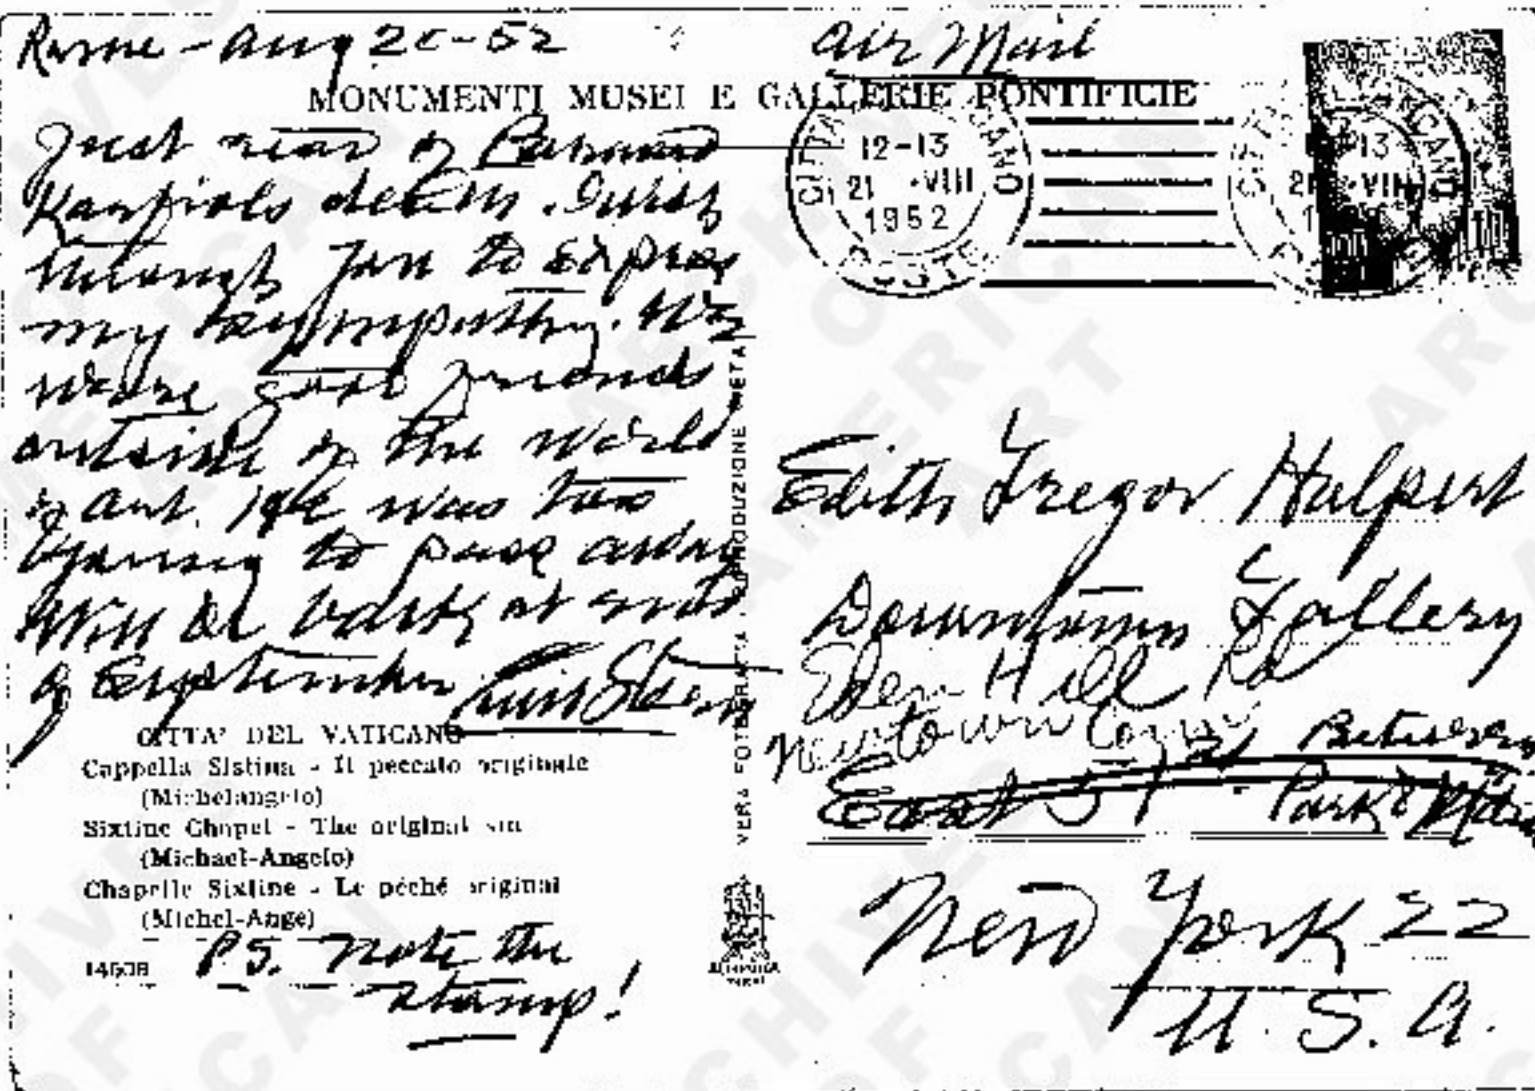 Rome - Aug 20-52
Air Mail
MONUMENTI MUSEI E GALLERIE PONTIFICIE
Just read of Bernard
Karfiols death. I wish
through you to express
my sympathy. We
were good friends
outside of the world
of art. He was too
young to pass away
Will be back at end
of September
CITTA' DEL VATICANO
Cappella Sistina - Il peccato originale
(Michelangelo)
Sixtine Chapel - The original sin
(Michael-Angelo)
Chapelle Sixtine - Le péché original
(Michel-Ange)
P.S. Note the
stamp!
VERA FOTOGRAFIA RIPRODUZIONE VIETATA
12-13
21 -VIII
1952
POSTE
Edith Gregor Halpert
Downtown Gallery
Eden Hill Rd
Newtown Conn
East 51 st Between
Park & Madi
New York 22
U.S.A.